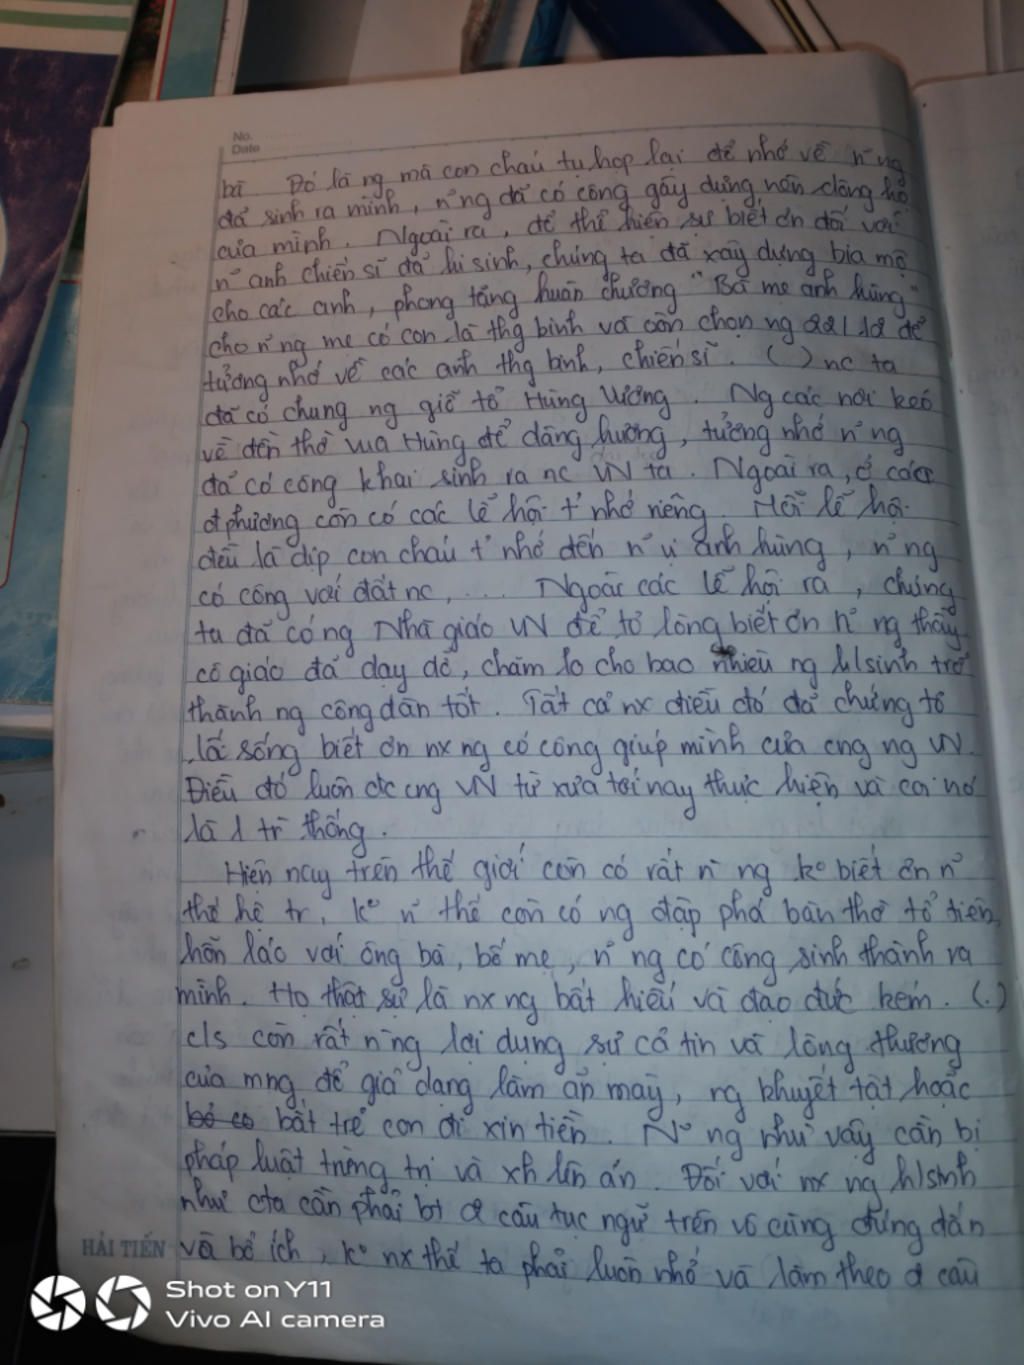 No.
Date
bà. Đó là ng mà con cháu tụ họp lại để nhớ về n~ ng
đã sinh ra mình, n~ ng đã có công gây dựng nên dòng họ
của mình. Ngoài ra, để thể hiện sự biết ơn đối với
n~ anh chiến sĩ đã hi sinh, chúng ta đã xây dựng bia mộ
cho các anh, phong tặng huân chương "Bà mẹ anh hùng"
cho n~ ng mẹ có con là thg binh và còn chọn ng 22/12 để
tưởng nhớ về các anh thg binh, chiến sĩ. ( ) nc ta
đã có chung ng giỗ tổ Hùng Vương. Ng các nơi kéo
về đền thờ vua Hùng để dâng hương, tưởng nhớ n~ ng
đã có công khai sinh ra nc VN ta. Ngoài ra, ở các
đphương còn có các lễ hội t' nhớ riêng. Mỗi lễ hội
đều là dịp con cháu t' nhớ đến n~ vị anh hùng, n~ ng
có công với đất nc, .... Ngoài các lễ hội ra, chúng
ta đã có ng Nhà giáo VN để tỏ lòng biết ơn n~ ng thầy
cô giáo đã dạy dỗ, chăm lo cho bao nhiêu ng h/sinh trở
thành ng công dân tốt. Tất cả nx điều đó đã chứng tỏ
lẽ sống biết ơn nx ng có công giúp mình của cng ng VN.
Điều đó luôn đc cng VN từ xưa tới nay thực hiện và coi nó
là 1 tr` thống.
Hiện nay trên thế giới còn có rất n` ng k° biết ơn n~
thế hệ tr', k° n~ thế còn có ng đập phá bàn thờ tổ tiên,
hỗn láo với ông bà, bố mẹ, n~ ng có công sinh thành ra
mình. Họ thật sự là nx ng bất hiếu và đạo đức kém. (.)
c/s còn rất n` ng lợi dụng sự cả tin và lòng thương
của mng để giả dạng làm ăn mày, ng khuyết tật hoặc
bắt trẻ con đi xin tiền. N~ ng như vậy cần bị
pháp luật trừng trị và xh lên án. Đối với nx ng h/sinh
như cta cần phải bt đ câu tục ngữ trên vô cùng đúng đắn
HẢI TIẾN và bổ ích, k° nx thế ta phải luôn nhớ và làm theo đ câu
Shot on Y11
Vivo AI camera